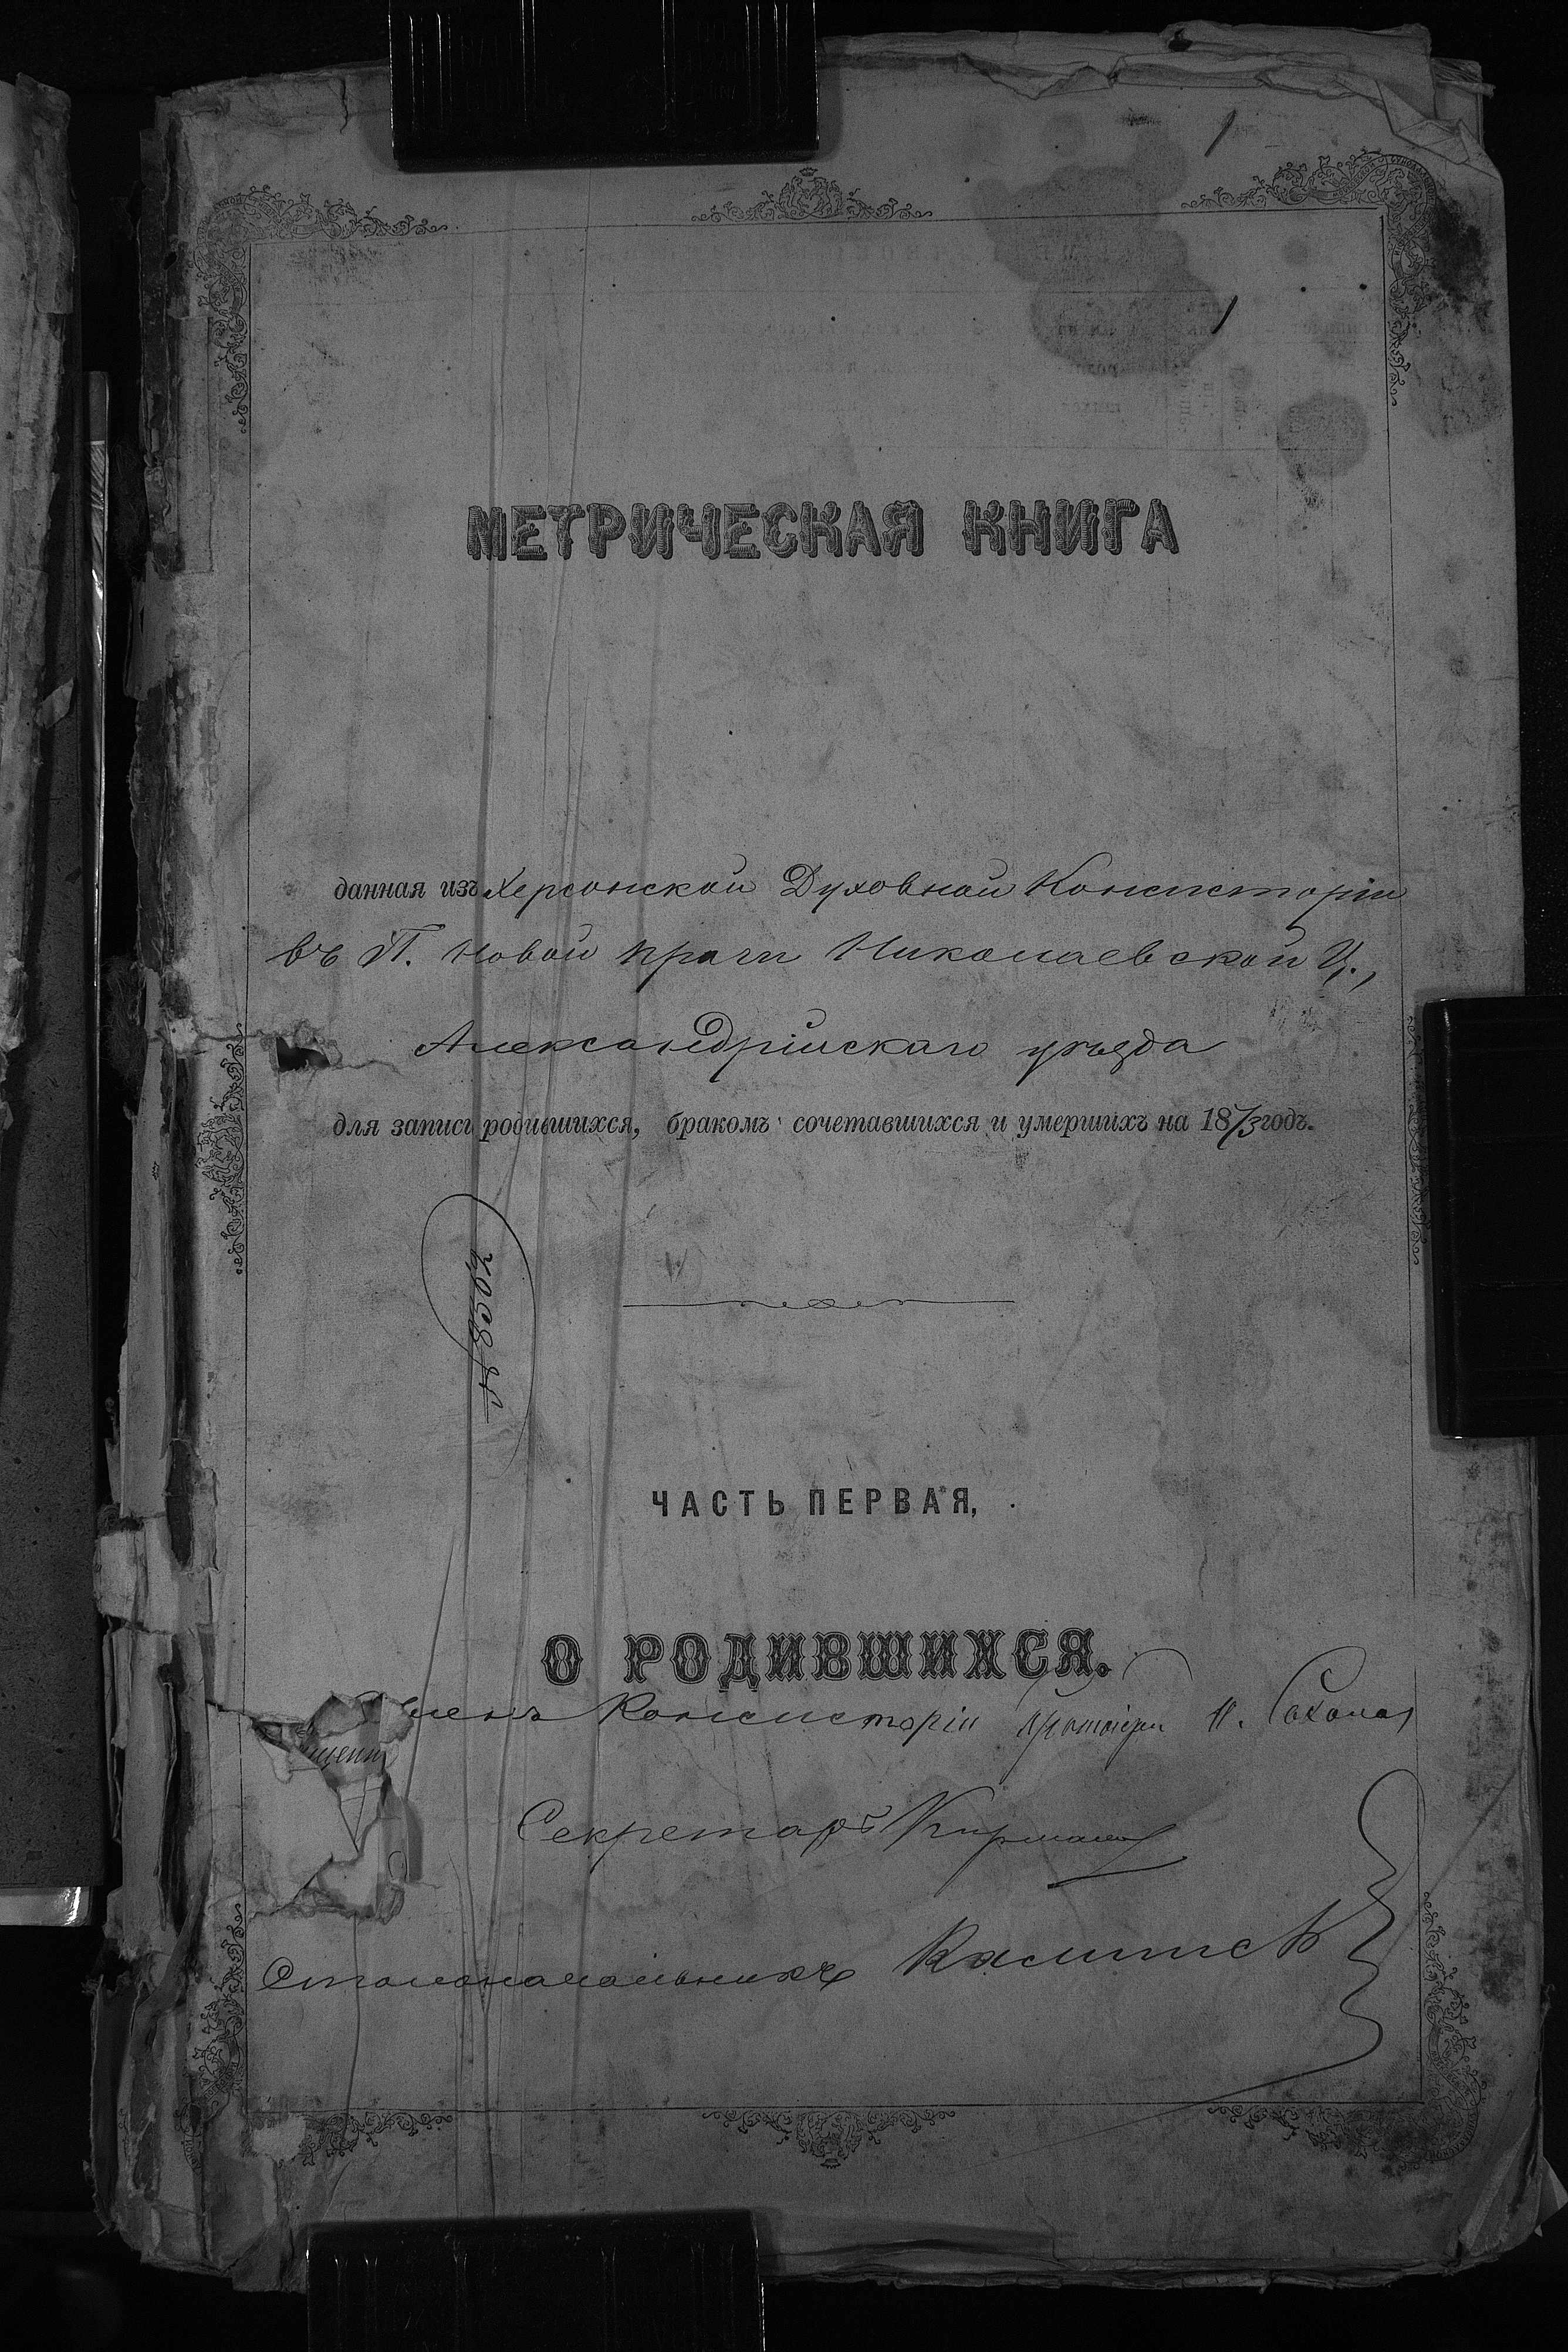 1
1
МЕТРИЧЕСКАЯ КНИГА
данная изъ Херсонской Духовной Консисторіи
въ П. Новой Праги Николаевской Ц.,
Александрійскаго уѣзда
для записи родившихся, бракомъ сочетавшихся и умершихъ на 1873 годъ.
№ 8502
ЧАСТЬ ПЕРВАЯ,
О РОДИВШИХСЯ.
Членъ Консисторіи Протоіерей
Секретарь
Столоначальникъ